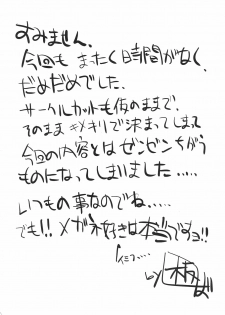 すみません.
今回も またく時間がなく.
だめだめでした.
サークルカットも仮のままで.
そのまま キメキリで決まってしまって
今回の内容とはゼンゼンちがう
ものになってしまいました.....
いつもの事なのでね....
でも!! メガネ好きは本当ですョ!!
by